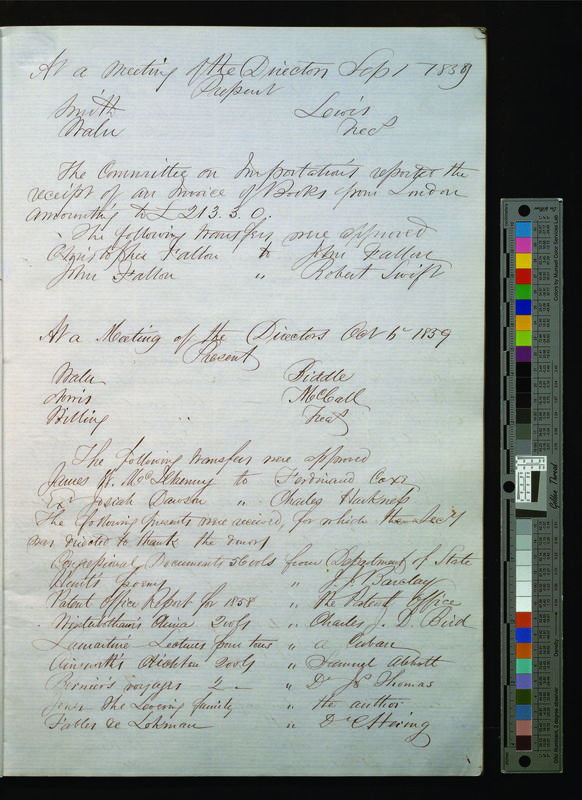 At a Meeting of the Directors Sep 1 1859
Present
Smith Lewis
Waln
The Committee on Importations reported the
receipt of an Invoice of Books from London
amounting to £ 213. 3. 0.
The following transfers were approved
Christopher Fallon to John Fallon
John Fallon " Robert Swift
At a Meeting of the Directors Oct 6 1859
Present
Waln Biddle
Norris McCall
Willing Treas
The following transfers were approved
James H. McIlhenny to Ferdinand Coxe
Exr Josiah Dawson " Charles Harkness
The following presents were received, for which the Secy
was directed to thank the donors
Congressional Documents 36 vols from Department of State
poems " Barclay
Patent Office Report for 1858 " the Patent Office
Winterbotham's China 2 vols " Charles J. D. Bird
Lamartine Lectures pour tous " a Cuban
Ainsworth's 2 vols " Samuel Abbott
Bernier's voyages 2 — " Dr Js Thomas
Jones The Levering family " the author
Fables de Lokman " Dr C Hering